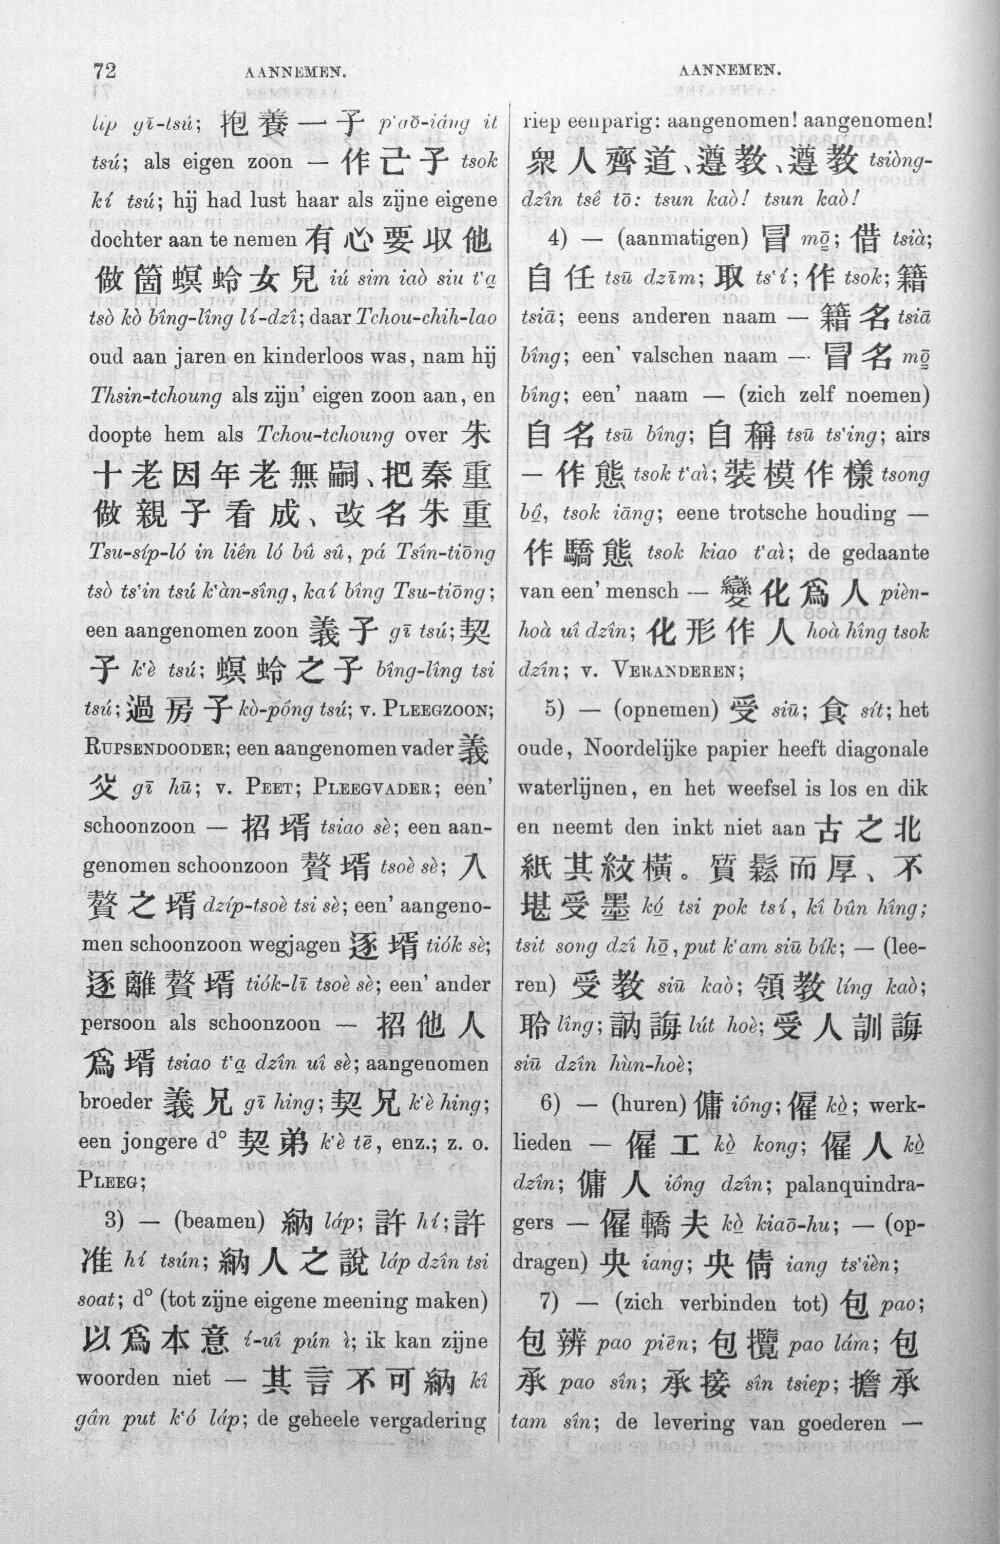 72
AANNEMEN.
AANNEMEN.
lip gī-tsú; 抱養一子 p'aō-iáng it
tsú; als eigen zoon — 作己子 tsok
kí tsú; hij had lust haar als zijne eigene
dochter aan te nemen 有心要収他
做箇螟蛉女兒 iú sim iaò siu t'a̱
tsò kò bîng-lîng lí-dzî; daar Tchou-chih-lao
oud aan jaren en kinderloos was, nam hij
Thsin-tchoung als zijn' eigen zoon aan, en
doopte hem als Tchou-tchoung over 朱
十老因年老無嗣、把秦重
做親子看成、改名朱重
Tsu-síp-ló in liên ló bû sû, pá Tsîn-tiōng
tsò ts'in tsú k'àn-sîng, kaí bîng Tsu-tiōng;
een aangenomen zoon 義子 gī tsú; 契
子 k'è tsú; 螟蛉之子 bîng-lîng tsi
tsú; 過房子 kò-póng tsú; v. PLEEGZOON;
RUPSENDOODER; een aangenomen vader 義
父 gī hū; v. PEET; PLEEGVADER; een'
schoonzoon — 招壻 tsiao sè; een aan-
genomen schoonzoon 贅壻 tsoè sè; 入
贅之壻 dzíp-tsoè tsi sè; een' aangeno-
men schoonzoon wegjagen 逐壻 tiók sè;
逐離贅壻 tiók-lī tsoè sè; een' ander
persoon als schoonzoon — 招他人
爲壻 tsiao t'a̱ dzîn uî sè; aangenomen
broeder 義兄 gī hing; 契兄 k'è hing;
een jongere d° 契弟 k'è tē, enz.; z. o.
PLEEG;
3) — (beamen) 納 láp; 許 hí; 許
准 hí tsún; 納人之說 láp dzîn tsi
soat; d° (tot zijne eigene meening maken)
以爲本意 í-uî pún ì; ik kan zijne
woorden niet — 其言不可納 kî
gân put k'ó láp; de geheele vergadering
riep eenparig: aangenomen! aangenomen!
衆人齊道、遵教、遵教 tsiòng-
dzîn tsê tō: tsun kaò! tsun kaò!
4) — (aanmatigen) 冒 mō̱; 借 tsià;
自任 tsū dzīm; 取 ts'í; 作 tsok; 籍
tsiā; eens anderen naam — 籍名 tsiā
bîng; een' valschen naam — 冒名 mō̱
bîng; een' naam — (zich zelf noemen)
自名 tsū bîng; 自稱 tsū ts'ing; airs
— 作態 tsok t'aì; 裝模作樣 tsong
bô, tsok iāng; eene trotsche houding —
作驕態 tsok kiao t'aì; de gedaante
van een' mensch — 變化爲人 pièn-
hoà uî dzîn; 化形作人 hoà hîng tsok
dzîn; v. VERANDEREN;
5) — (opnemen) 受 siū; 食 sít; het
oude, Noordelijke papier heeft diagonale
waterlijnen, en het weefsel is los en dik
en neemt den inkt niet aan 古之北
紙其紋橫。質鬆而厚、不
堪受墨 kó̱ tsi pok tsí, kî bûn hîng;
tsit song dzî hō̱, put k'am siū bík; — (lee-
ren) 受教 siū kaò; 領教 líng kaò;
聆 lîng; 訥誨 lút hoè; 受人訓誨
siū dzîn hùn-hoè;
6) — (huren) 傭 iông; 僱 kò̱; werk-
lieden — 僱工 kò̱ kong; 僱人 kò̱
dzîn; 傭人 iông dzîn; palanquindra-
gers — 僱轎夫 kò̱ kiaō-hu; — (op-
dragen) 央 iang; 央倩 iang ts'ièn;
7) — (zich verbinden tot) 包 pao;
包辨 pao piēn; 包攬 pao lám; 包
承 pao sîn; 承接 sîn tsiep; 擔承
tam sîn; de levering van goederen —